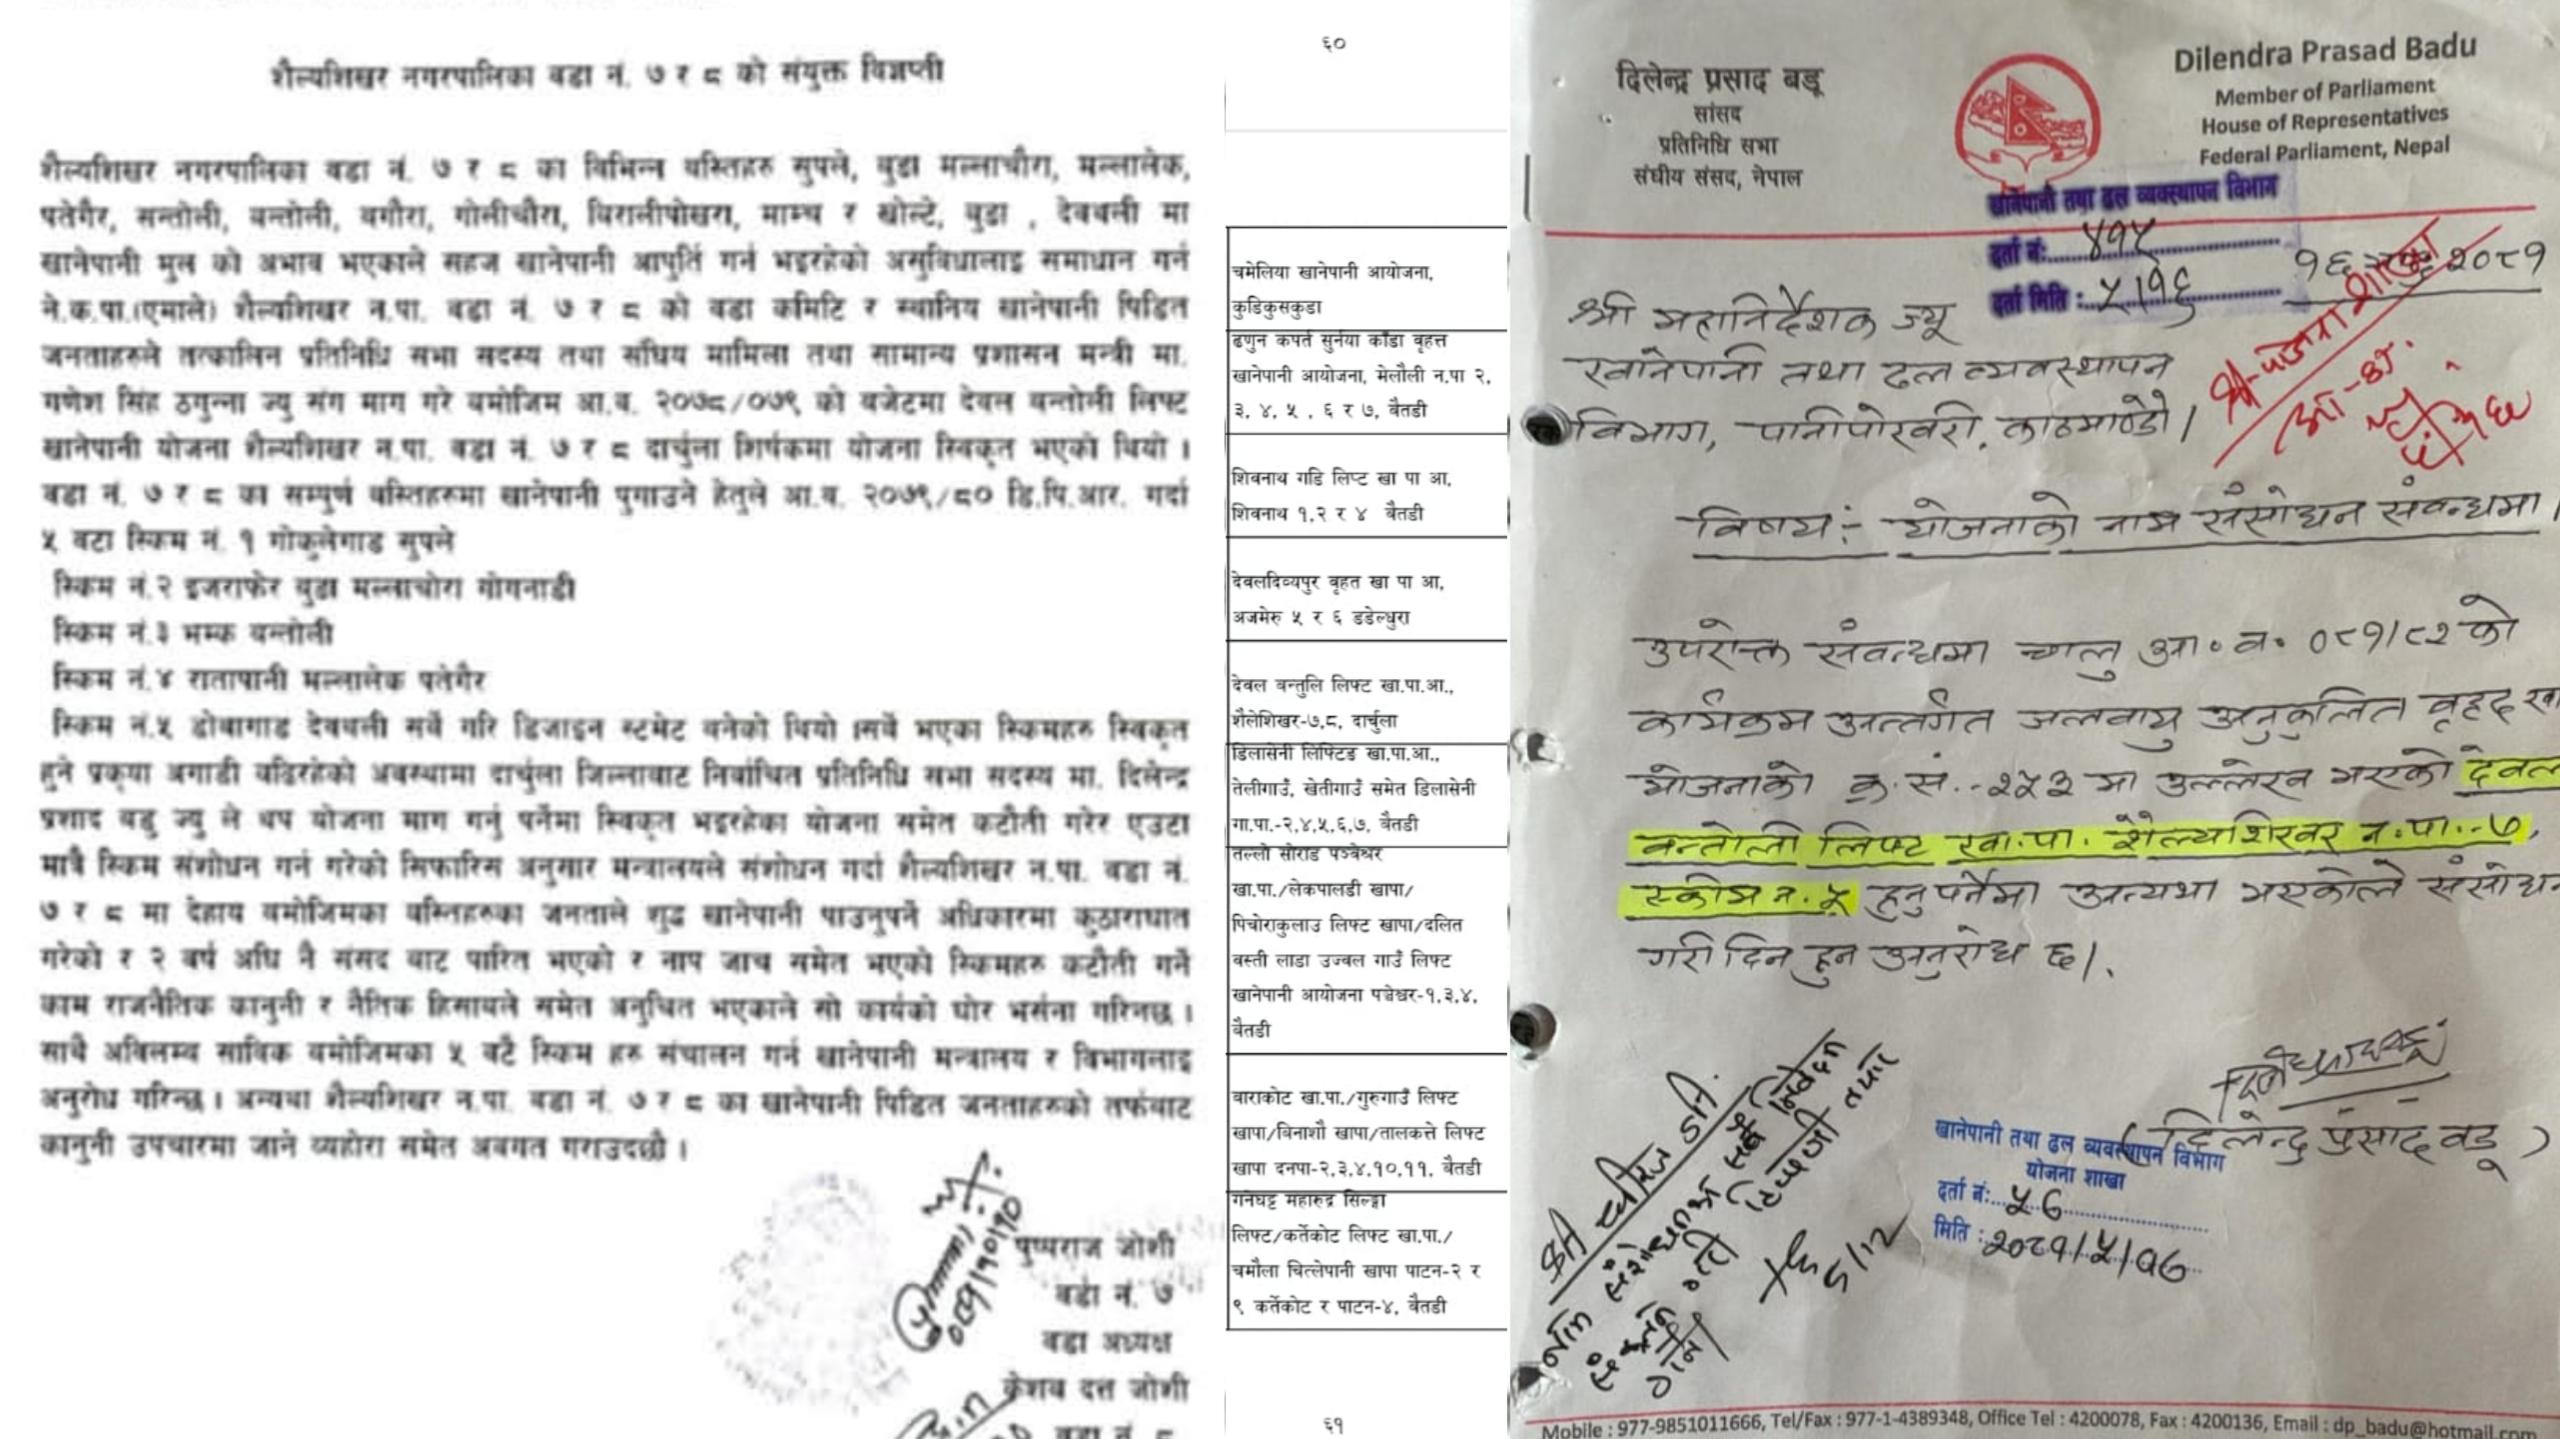 शैल्यशिखर नगरपालिका वडा नं. ७ र ८ को संयुक्त विज्ञप्ती
शैल्यशिखर नगरपालिका वडा नं. ७ र ८ का विभिन्न वस्तिहरु सुपले, बुडा मल्लाचौरा, मल्लालेक,
पतेगैर, सन्तोली, बन्तोली, वगौरा, गोलीचौरा, विरालीपोखरा, माम्च र खोल्टे, बुडा , देवथली मा
खानेपानी मुल को अभाव भएकाले सहज खानेपानी आपुर्ति गर्न भइरहेको असुविधालाइ समाधान गर्न
ने.क.पा.(एमाले) शैल्यशिखर न.पा. वडा नं. ७ र ८ को वडा कमिटि र स्थानिय खानेपानी पिडित
जनताहरुले तत्कालिन प्रतिनिधि सभा सदस्य तथा संघिय मामिला तथा सामान्य प्रशासन मन्त्री मा.
गणेश सिंह ठगुन्ना ज्यु संग माग गरे बमोजिम आ.ब. २०७८/०७९ को बजेटमा देवल बन्तोली लिफ्ट
खानेपानी योजना शैल्यशिखर न.पा. वडा नं. ७ र ८ दार्चुला शिर्षकमा योजना स्विकृत भएको थियो ।
वडा नं. ७ र ८ का सम्पुर्ण वस्तिहरुमा खानेपानी पुगाउने हेतुले आ.ब. २०७९/८० डि.पि.आर. गर्दा
५ वटा स्किम नं. १ गोकुलेगाड सुपले
स्किम नं.२ इजराफेर बुडा मल्लाचोरा गोगनाडी
स्किम नं.३ भम्क बन्तोली
स्किम नं.४ रातापानी मल्लालेक पतेगैर
स्किम नं.५ डोबागाड देवथली सर्वे गरि डिजाइन स्टमेट बनेको थियो ।सर्वे भएका स्किमहरु स्विकृत
हुने प्रकृया अगाडी बढिरहेको अवस्थामा दार्चुला जिल्लाबाट निर्वाचित प्रतिनिधि सभा सदस्य मा. दिलेन्द्र
प्रशाद बडु ज्यु ले थप योजना माग गर्नु पर्नेमा स्विकृत भइरहेका योजना समेत कटौती गरेर एउटा
मात्रै स्किम संशोधन गर्न गरेको सिफारिस अनुसार मन्त्रालयले संशोधन गर्दा शैल्यशिखर न.पा. वडा नं.
७ र ८ मा देहाय बमोजिमका वस्तिहरुका जनताले शुद्ध खानेपानी पाउनुपर्ने अधिकारमा कुठाराघात
गरेको र २ वर्ष अघि नै संसद बाट पारित भएको र नाप जाच समेत भएको स्किमहरु कटौती गर्ने
काम राजनैतिक कानुनी र नैतिक हिसाबले समेत अनुचित भएकाले सो कार्यको घोर भर्सना गरिन्छ ।
साथै अविलम्ब साविक बमोजिमका ५ वटै स्किम हरु संचालन गर्न खानेपानी मन्त्रालय र विभागलाइ
अनुरोध गरिन्छ । अन्यथा शैल्यशिखर न.पा. वडा नं. ७ र ८ का खानेपानी पिडित जनताहरुको तर्फबाट
कानुनी उपचारमा जाने व्यहोरा समेत अवगत गराउदछौ ।
पुष्पराज जोशी
वडा नं. ७
वडा अध्यक्ष
केशव दत्त जोशी
वडा नं. ८
६०
चमेलिया खानेपानी आयोजना,
कुडिकुसकुडा
ढणुन कपर्त सुर्नया काँडा वृहत्त
खानेपानी आयोजना, मेलौली न.पा २,
३, ४, ५ , ६ र ७, बैतडी
शिवनाथ गडि लिप्ट खा पा आ,
शिवनाथ १,२ र ४ बैतडी
देवलदिव्यपुर वृहत खा पा आ,
अजमेरु ५ र ६ डडेल्धुरा
देवल बन्तुलि लिफ्ट खा.पा.आ.,
शैलेशिखर-७,८, दार्चुला
डिलासेनी लिफ्टिड खा.पा.आ.,
तेलीगाउँ, खेतीगाउँ समेत डिलासेनी
गा.पा.-२,४,५,६,७, बैतडी
तल्लो सोराड पञ्चेश्वर
खा.पा./लेकपालडी खापा/
पिचोराकुलाउ लिफ्ट खापा/दलित
वस्ती लाडा उज्वल गाउँ लिफ्ट
खानेपानी आयोजना पञ्चेश्वर-१,३,४,
बैतडी
बाराकोट खा.पा./गुरुगाउँ लिफ्ट
खापा/बिनाशौ खापा/तालकत्ते लिफ्ट
खापा दनपा-२,३,४,१०,११, बैतडी
गनेघट्ट महारुद्र सिल्ङ्गा
लिफ्ट/कर्तेकोट लिफ्ट खा.पा./
चमौला चित्लेपानी खापा पाटन-२ र
९ कर्तेकोट र पाटन-४, बैतडी
६१
दिलेन्द्र प्रसाद बडू
सांसद
प्रतिनिधि सभा
संघीय संसद, नेपाल
Dilendra Prasad Badu
Member of Parliament
House of Representatives
Federal Parliament, Nepal
खानेपानी तथा ढल व्यवस्थापन विभाग
दर्ता नं: ४१५
दर्ता मिति : ५/१६
१६ २०८१
श्री महानिर्देशक ज्यू
खानेपानी तथा ढल व्यवस्थापन
विभाग, पानीपोखरी, काठमाण्डौ ।
विषय :- योजनाको नाम संसोधन संवन्धमा ।
उपरोक्त संवन्धमा चालु आ.व. ०८१/८२ को
कार्यक्रम अन्तर्गत जलवायु अनुकुलित वृहद खा
योजनाको क्र.सं.-२५३ मा उल्लेख भएको देवल
बन्तोली लिफ्ट खा.पा. शैल्यशिखर न.पा.-७,
स्कीम न. ५ हुनुपर्नेमा अन्यथा भएकोले संसोधन
गरी दिन हुन अनुरोध छ ।
(दिलेन्द्र प्रसाद बडू)
खानेपानी तथा ढल व्यवस्थापन विभाग
योजना शाखा
दर्ता नं: ५७
मिति : २०८१/५/१७
Mobile : 977-9851011666, Tel/Fax : 977-1-4389348, Office Tel : 4200078, Fax : 4200136, Email : dp_badu@hotmail.com